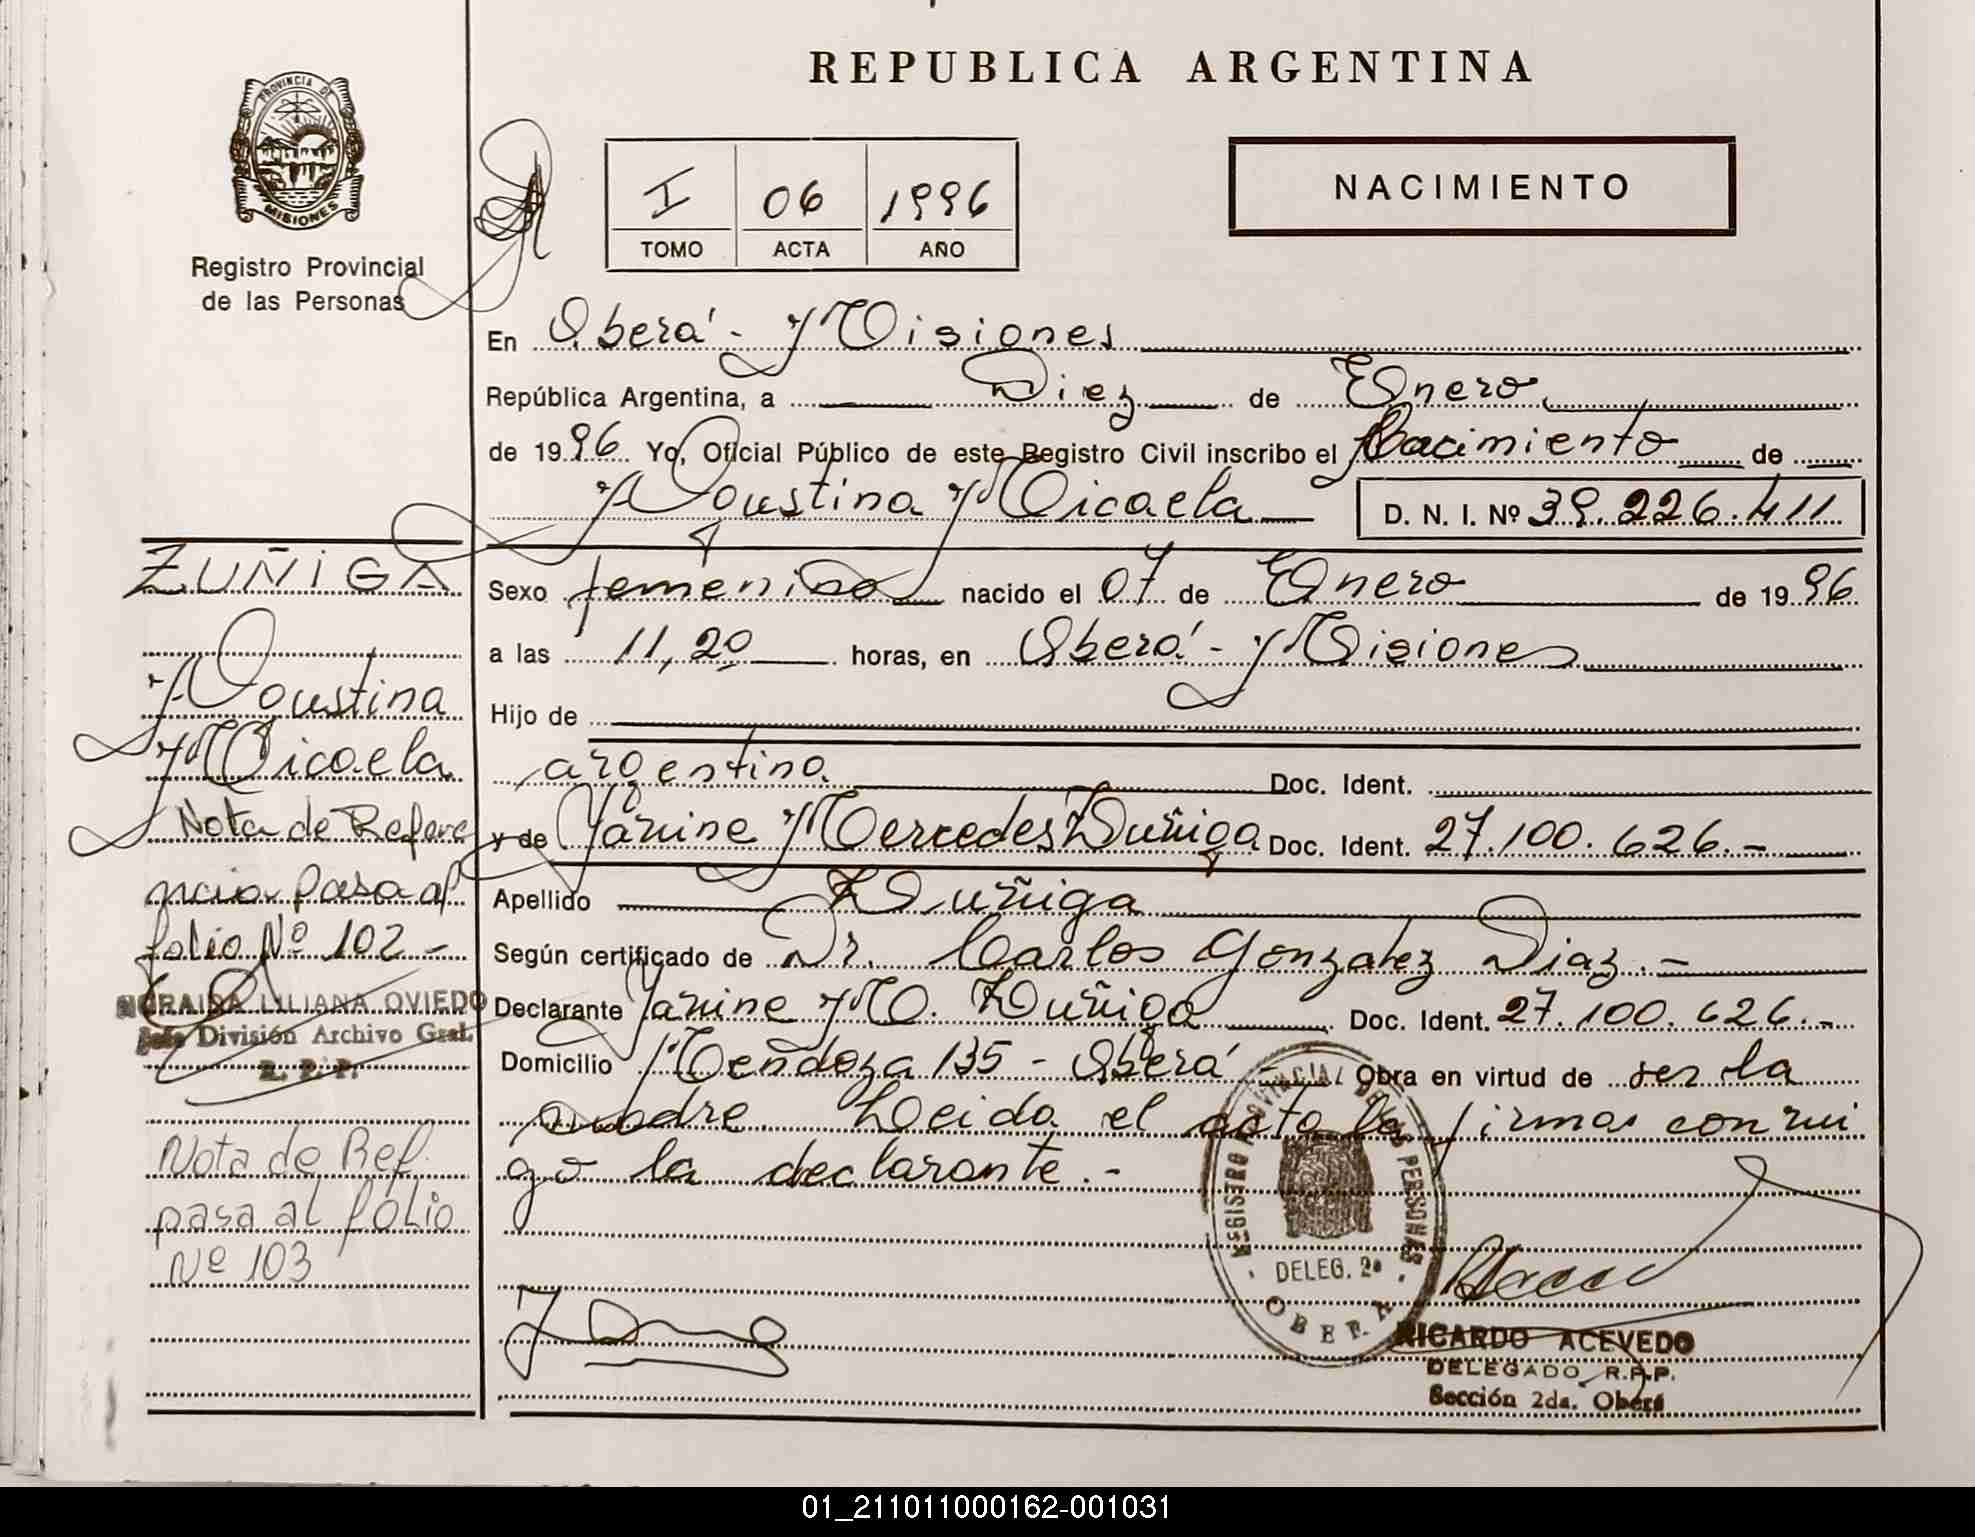 REPUBLICA ARGENTINA
PROVINCIA DE
MISIONES
Registro Provincial
de las Personas
I 06 1996
TOMO ACTA AÑO
NACIMIENTO
En Oberá - Misiones
República Argentina, a Diez de Enero
de 1996 Yo, Oficial Público de este Registro Civil inscribo el Nacimiento de
Agustina Micaela D. N. I. Nº 39.226.411
Sexo femenino nacido el 07 de Enero de 1996
a las 11,20 horas, en Oberá - Misiones
Hijo de
argentina Doc. Ident.
y de Yanine Mercedes Zuñiga Doc. Ident. 27.100.626.-
Apellido Zuñiga
Según certificado de Dr. Carlos Gonzalez Diaz.-
Declarante Yanine M. Zuñiga Doc. Ident. 27.100.626.-
Domicilio Mendoza 135 - Oberá - Obra en virtud de ser la
madre. Leida el acta la firma conmi
go la declarante.-
ZUÑIGA
Agustina
Micaela
Nota de Refere
ncia pasa al
folio Nº 102 -
MORAISA LILIANA OVIEDO
Jefe División Archivo Gral.
R. P. P.
Nota de Ref.
pasa al folio
Nº 103
REGISTRO PROVINCIAL DE LAS PERSONAS
DELEG. 2ª
OBERA
RICARDO ACEVEDO
DELEGADO R.P.P.
Sección 2da. Oberá
01_211011000162-001031